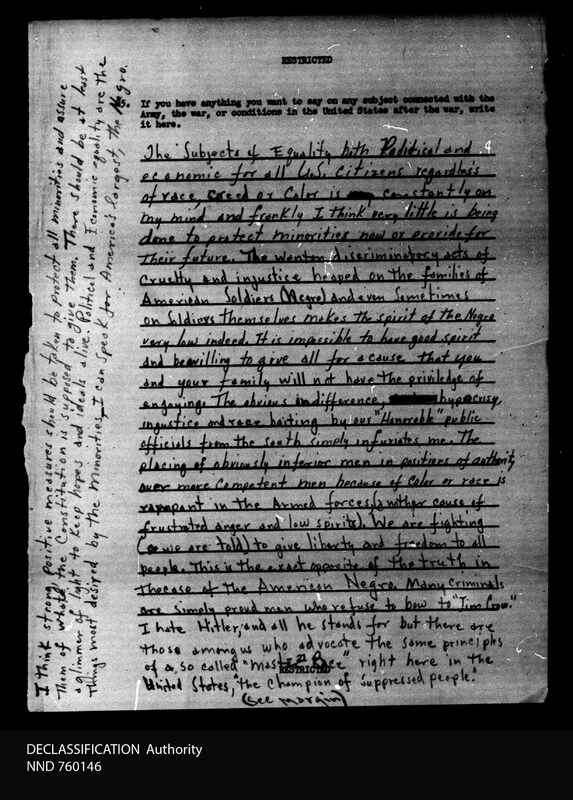 RESTRICTED
If you have anything you want to say on any subject connected with the
Army, the war, or conditions in the United States after the war, write
it here.
The Subjects of Equality both Political and
economic for all U.S. Citizens regardless
of race, Creed or Color is constantly on
my mind and frankly I think very little is being
done to protect minorities now or provide for
their future. The wanton discriminatory acts of
Cruelty and injustice heaped on the families of
American Soldiers (Negro) and even Sometimes
on Soldiers themselves makes the spirit of the Negro
very low indeed. It is impossible to have good spirit
and be willing to give all for a cause that you
and your family will not have the privilege of
enjoying. The obvious indifference, hypocrisy,
injustice and race baiting by our "Honorable" public
officials from the south simply infuriates me. The
placing of obviously inferior men in positions of authority
over more Competent men because of Color or race is
rampant in the Armed forces, (another cause of
frustrated anger and low spirits). We are fighting
(so we are told) to give liberty and freedom to all
people. This is the exact opposite of the truth in
the case of the American Negro. Many Criminals
are simply proud men who refuse to bow to "Jim Crow."
I hate Hitler, and all he stands for but there are
those among us who advocate the same principles
of a so called "Master Race" right here in the
RESTRICTED
United States, "the Champion of Suppressed people."
(See margin)
I think strong positive measures should be taken to protect all minorities and assure
them of what the Constitution is supposed to give them. There should be at least
a glimmer of light to keep hopes and ideals alive. Political and Economic equality are the
things most desired by the minorities, I can speak for America's largest, the Negro.
DECLASSIFICATION Authority
NND 760146